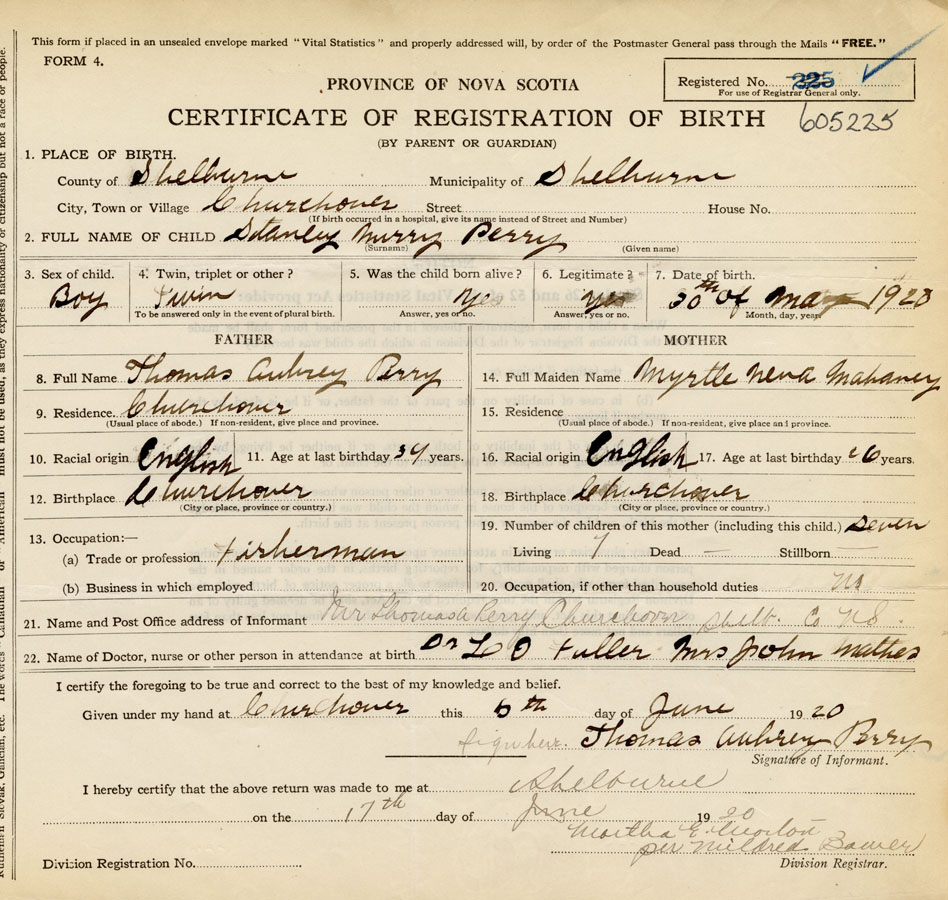 This form if placed in an unsealed envelope marked "Vital Statistics" and properly addressed will, by order of the Postmaster General pass through the Mails "FREE."
FORM 4.
Registered No. 225
For use of Registrar General only.
605225
PROVINCE OF NOVA SCOTIA
CERTIFICATE OF REGISTRATION OF BIRTH
(BY PARENT OR GUARDIAN)
1. PLACE OF BIRTH.
County of Shelburne Municipality of Shelburne
City, Town or Village Churchover Street House No.
(If birth occurred in a hospital, give its name instead of Street and Number)
2. FULL NAME OF CHILD Stanley Murry Perry
(Surname) (Given name)
3. Sex of child. 4. Twin, triplet or other? 5. Was the child born alive? 6. Legitimate? 7. Date of birth.
Boy Twin Yes Yes 30th of May 1920
To be answered only in the event of plural birth. Answer, yes or no. Answer, yes or no. Month, day, year
FATHER MOTHER
8. Full Name Thomas Aubrey Perry 14. Full Maiden Name Myrtle Neva Mahaney
9. Residence. Churchover 15. Residence
(Usual place of abode.) If non-resident, give place and province. (Usual place of abode.) If non-resident, give place and province.
10. Racial origin English 11. Age at last birthday years. 16. Racial origin English 17. Age at last birthday years.
12. Birthplace Churchover 18. Birthplace Churchover
(City or place, province or country.) (City or place, province or country.)
13. Occupation:— 19. Number of children of this mother (including this child.) Seven
(a) Trade or profession Fisherman Living 7 Dead — Stillborn —
(b) Business in which employed 20. Occupation, if other than household duties
21. Name and Post Office address of Informant Mr Thomas A Perry Churchover Shelb. Co N S.
22. Name of Doctor, nurse or other person in attendance at birth Dr L O Fuller Mrs John Mathes
I certify the foregoing to be true and correct to the best of my knowledge and belief.
Given under my hand at Churchover this 6th day of June 1920
Thomas Aubrey Perry
Signature of Informant.
I hereby certify that the above return was made to me at Shelburne
on the 17th day of June 1920
Martha E. Morton
per Mildred Bower
Division Registration No. Division Registrar.